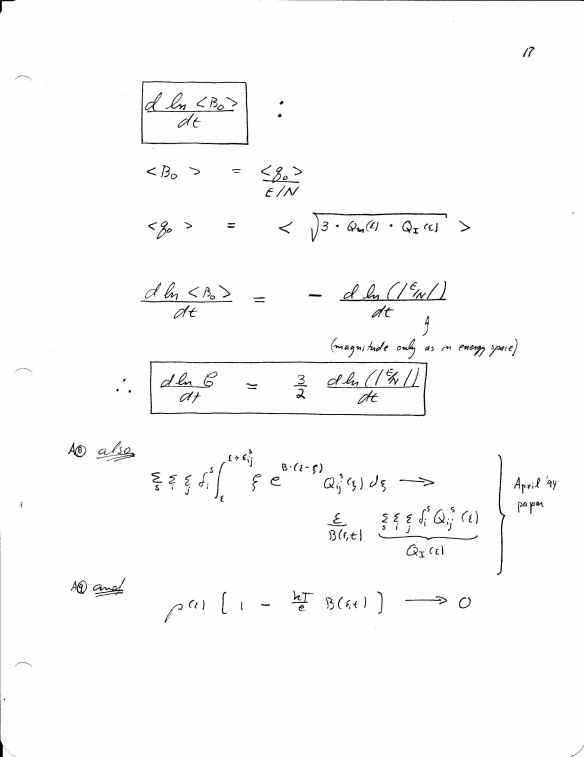 17
d ln <B₀> / dt :
<B₀> = <g₀> / E/N
<g₀> = < √(3 · Qₘ(ε) · Q_I(ε)) >
d ln <B₀> / dt = - d ln (|E/N|) / dt
(magnitude only as in energy space)
∴ d ln C / dt = 3/2 d ln (|E/N|) / dt
A⑧ also
Σₛ Σᵢ Σⱼ δᵢˢ ∫_ε^(ε+εᵢⱼˢ) ξ e^(B·(ε-ξ)) Qᵢⱼˢ(ξ) dξ →
ε / B(ε,t) Σₛ Σᵢ Σⱼ δᵢˢ Qᵢⱼˢ(ε)
Q_I(ε)
April '94
paper
A⑨ and
ρ(ε) [ 1 - kT/e B(ε,t) ] → 0